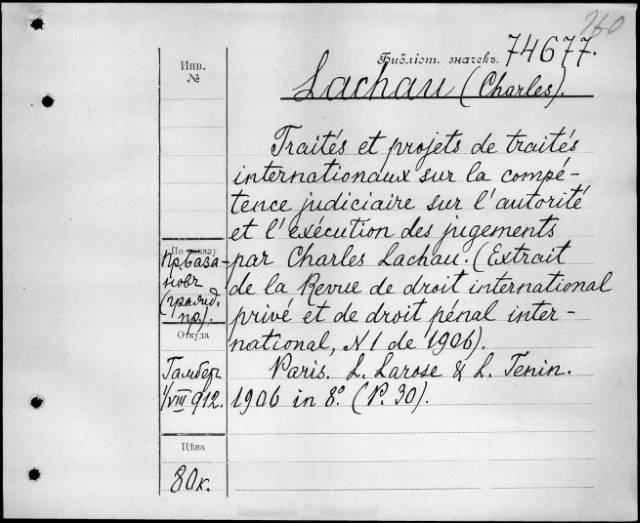 260
Библіот. значекъ. 74677.
Инв.
№
Lachau (Charles).
Traités et projets de traités
internationaux sur la compé-
tence judiciaire sur l'autorité
et l'exécution des jugements
par Charles Lachau. (Extrait
de la Revue de droit international
privé et de droit pénal inter-
national, N 1 de 1906).
Paris. L. Larose & L. Tenin.
1906 in 8º. (P. 30).
По заказу
(гражд.
пр.).
Откуда
Гамбер
1/VIII 912.
Цѣна
80 к.